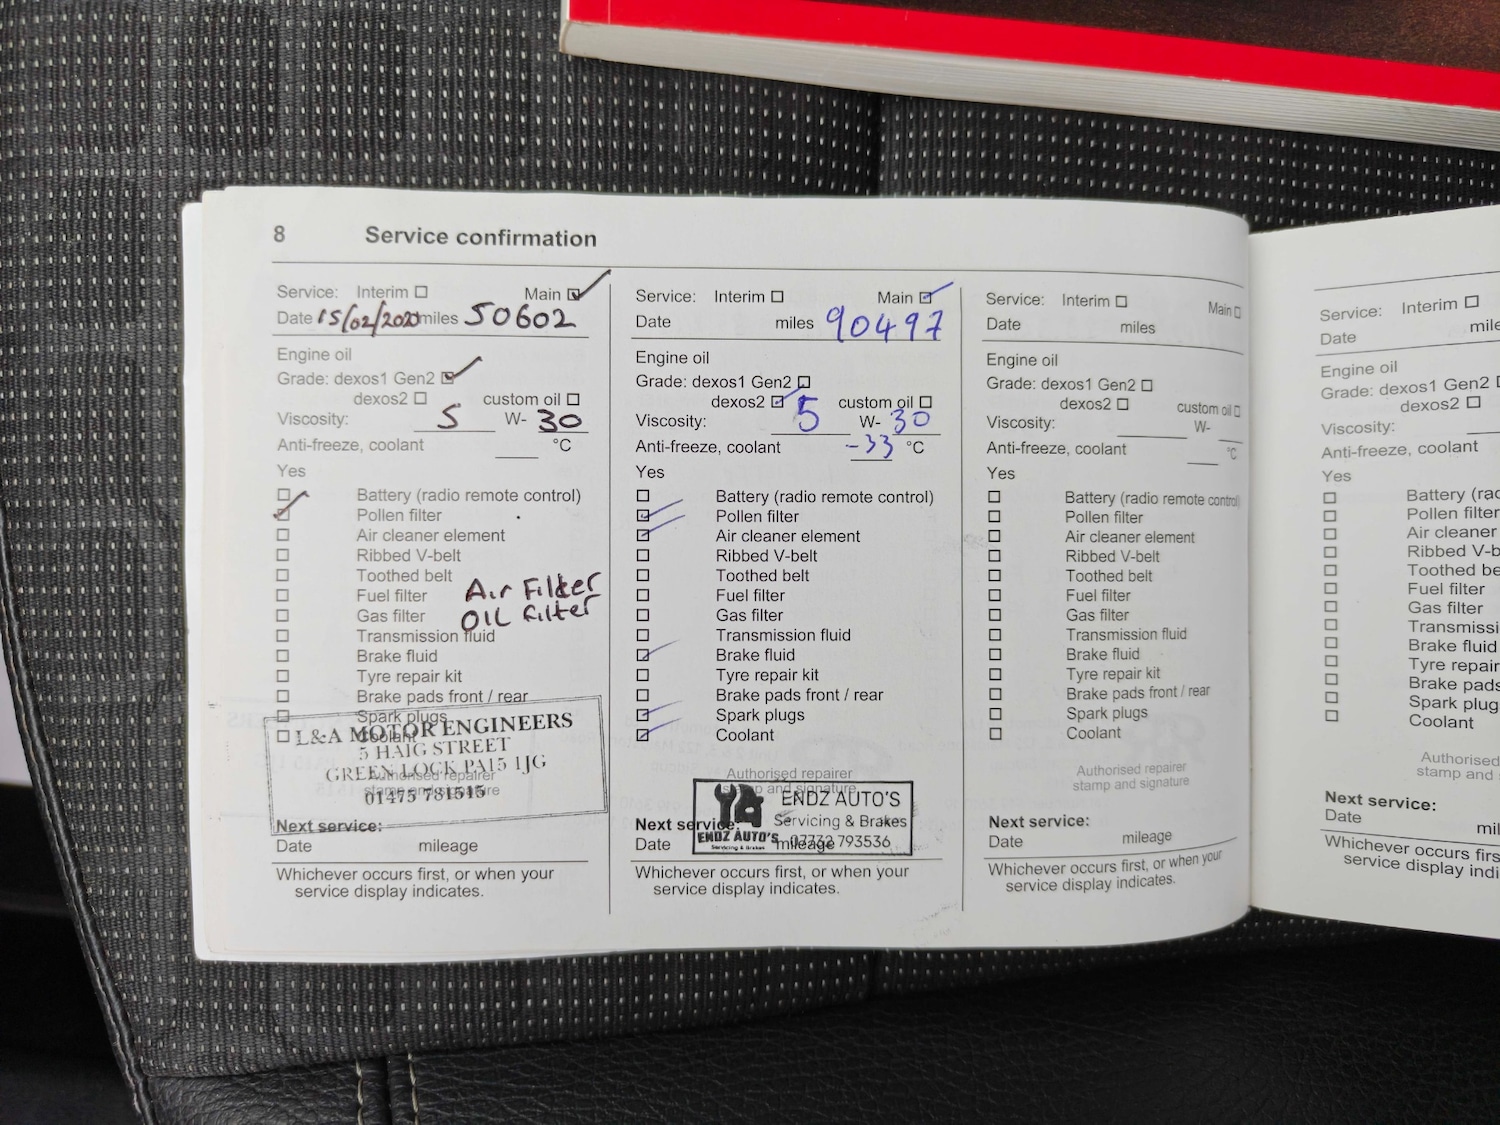 8 Service confirmation
Service: Interim ☐ Main ☑
Date 15/02/2020 miles 50602
Engine oil
Grade: dexos1 Gen2 ☑
dexos2 ☐ custom oil ☐
Viscosity: 5 W- 30
Anti-freeze, coolant ___ °C
Yes
☐ Battery (radio remote control)
☑ Pollen filter
☐ Air cleaner element
☐ Ribbed V-belt
☐ Toothed belt
Air Filter
☐ Fuel filter
OIL Filter
☐ Gas filter
☐ Transmission fluid
☐ Brake fluid
☐ Tyre repair kit
☐ Brake pads front / rear
☐ Spark plugs
☐ Coolant
L&A MOTOR ENGINEERS
5 HAIG STREET
GREENLOCK PA15 1JG
01475 781515
Authorised repairer
stamp and signature
Next service:
Date mileage
Whichever occurs first, or when your
service display indicates.
Service: Interim ☐ Main ☑
Date miles 90497
Engine oil
Grade: dexos1 Gen2 ☐
dexos2 ☑ custom oil ☐
Viscosity: 5 W- 30
Anti-freeze, coolant -33 °C
Yes
☐ Battery (radio remote control)
☑ Pollen filter
☑ Air cleaner element
☐ Ribbed V-belt
☐ Toothed belt
☐ Fuel filter
☐ Gas filter
☐ Transmission fluid
☑ Brake fluid
☐ Tyre repair kit
☐ Brake pads front / rear
☑ Spark plugs
☑ Coolant
Authorised repairer
stamp and signature
ENDZ AUTO'S
Servicing & Brakes
07732 793536
ENDZ AUTO'S
Servicing & Brakes
Next service:
Date mileage
Whichever occurs first, or when your
service display indicates.
Service: Interim ☐ Main ☐
Date miles
Engine oil
Grade: dexos1 Gen2 ☐
dexos2 ☐ custom oil ☐
Viscosity: ___ W- ___
Anti-freeze, coolant ___ °C
Yes
☐ Battery (radio remote control)
☐ Pollen filter
☐ Air cleaner element
☐ Ribbed V-belt
☐ Toothed belt
☐ Fuel filter
☐ Gas filter
☐ Transmission fluid
☐ Brake fluid
☐ Tyre repair kit
☐ Brake pads front / rear
☐ Spark plugs
☐ Coolant
Authorised repairer
stamp and signature
Next service:
Date mileage
Whichever occurs first, or when your
service display indicates.
Service: Interim ☐
Date mile
Engine oil
Grade: dexos1 Gen2 ☐
dexos2 ☐
Viscosity:
Anti-freeze, coolant
Yes
☐ Battery (rad
☐ Pollen filter
☐ Air cleaner
☐ Ribbed V-b
☐ Toothed be
☐ Fuel filter
☐ Gas filter
☐ Transmissi
☐ Brake fluid
☐ Tyre repair
☐ Brake pads
☐ Spark plug
☐ Coolant
Authorised
stamp and
Next service:
Date mil
Whichever occurs firs
service display indi